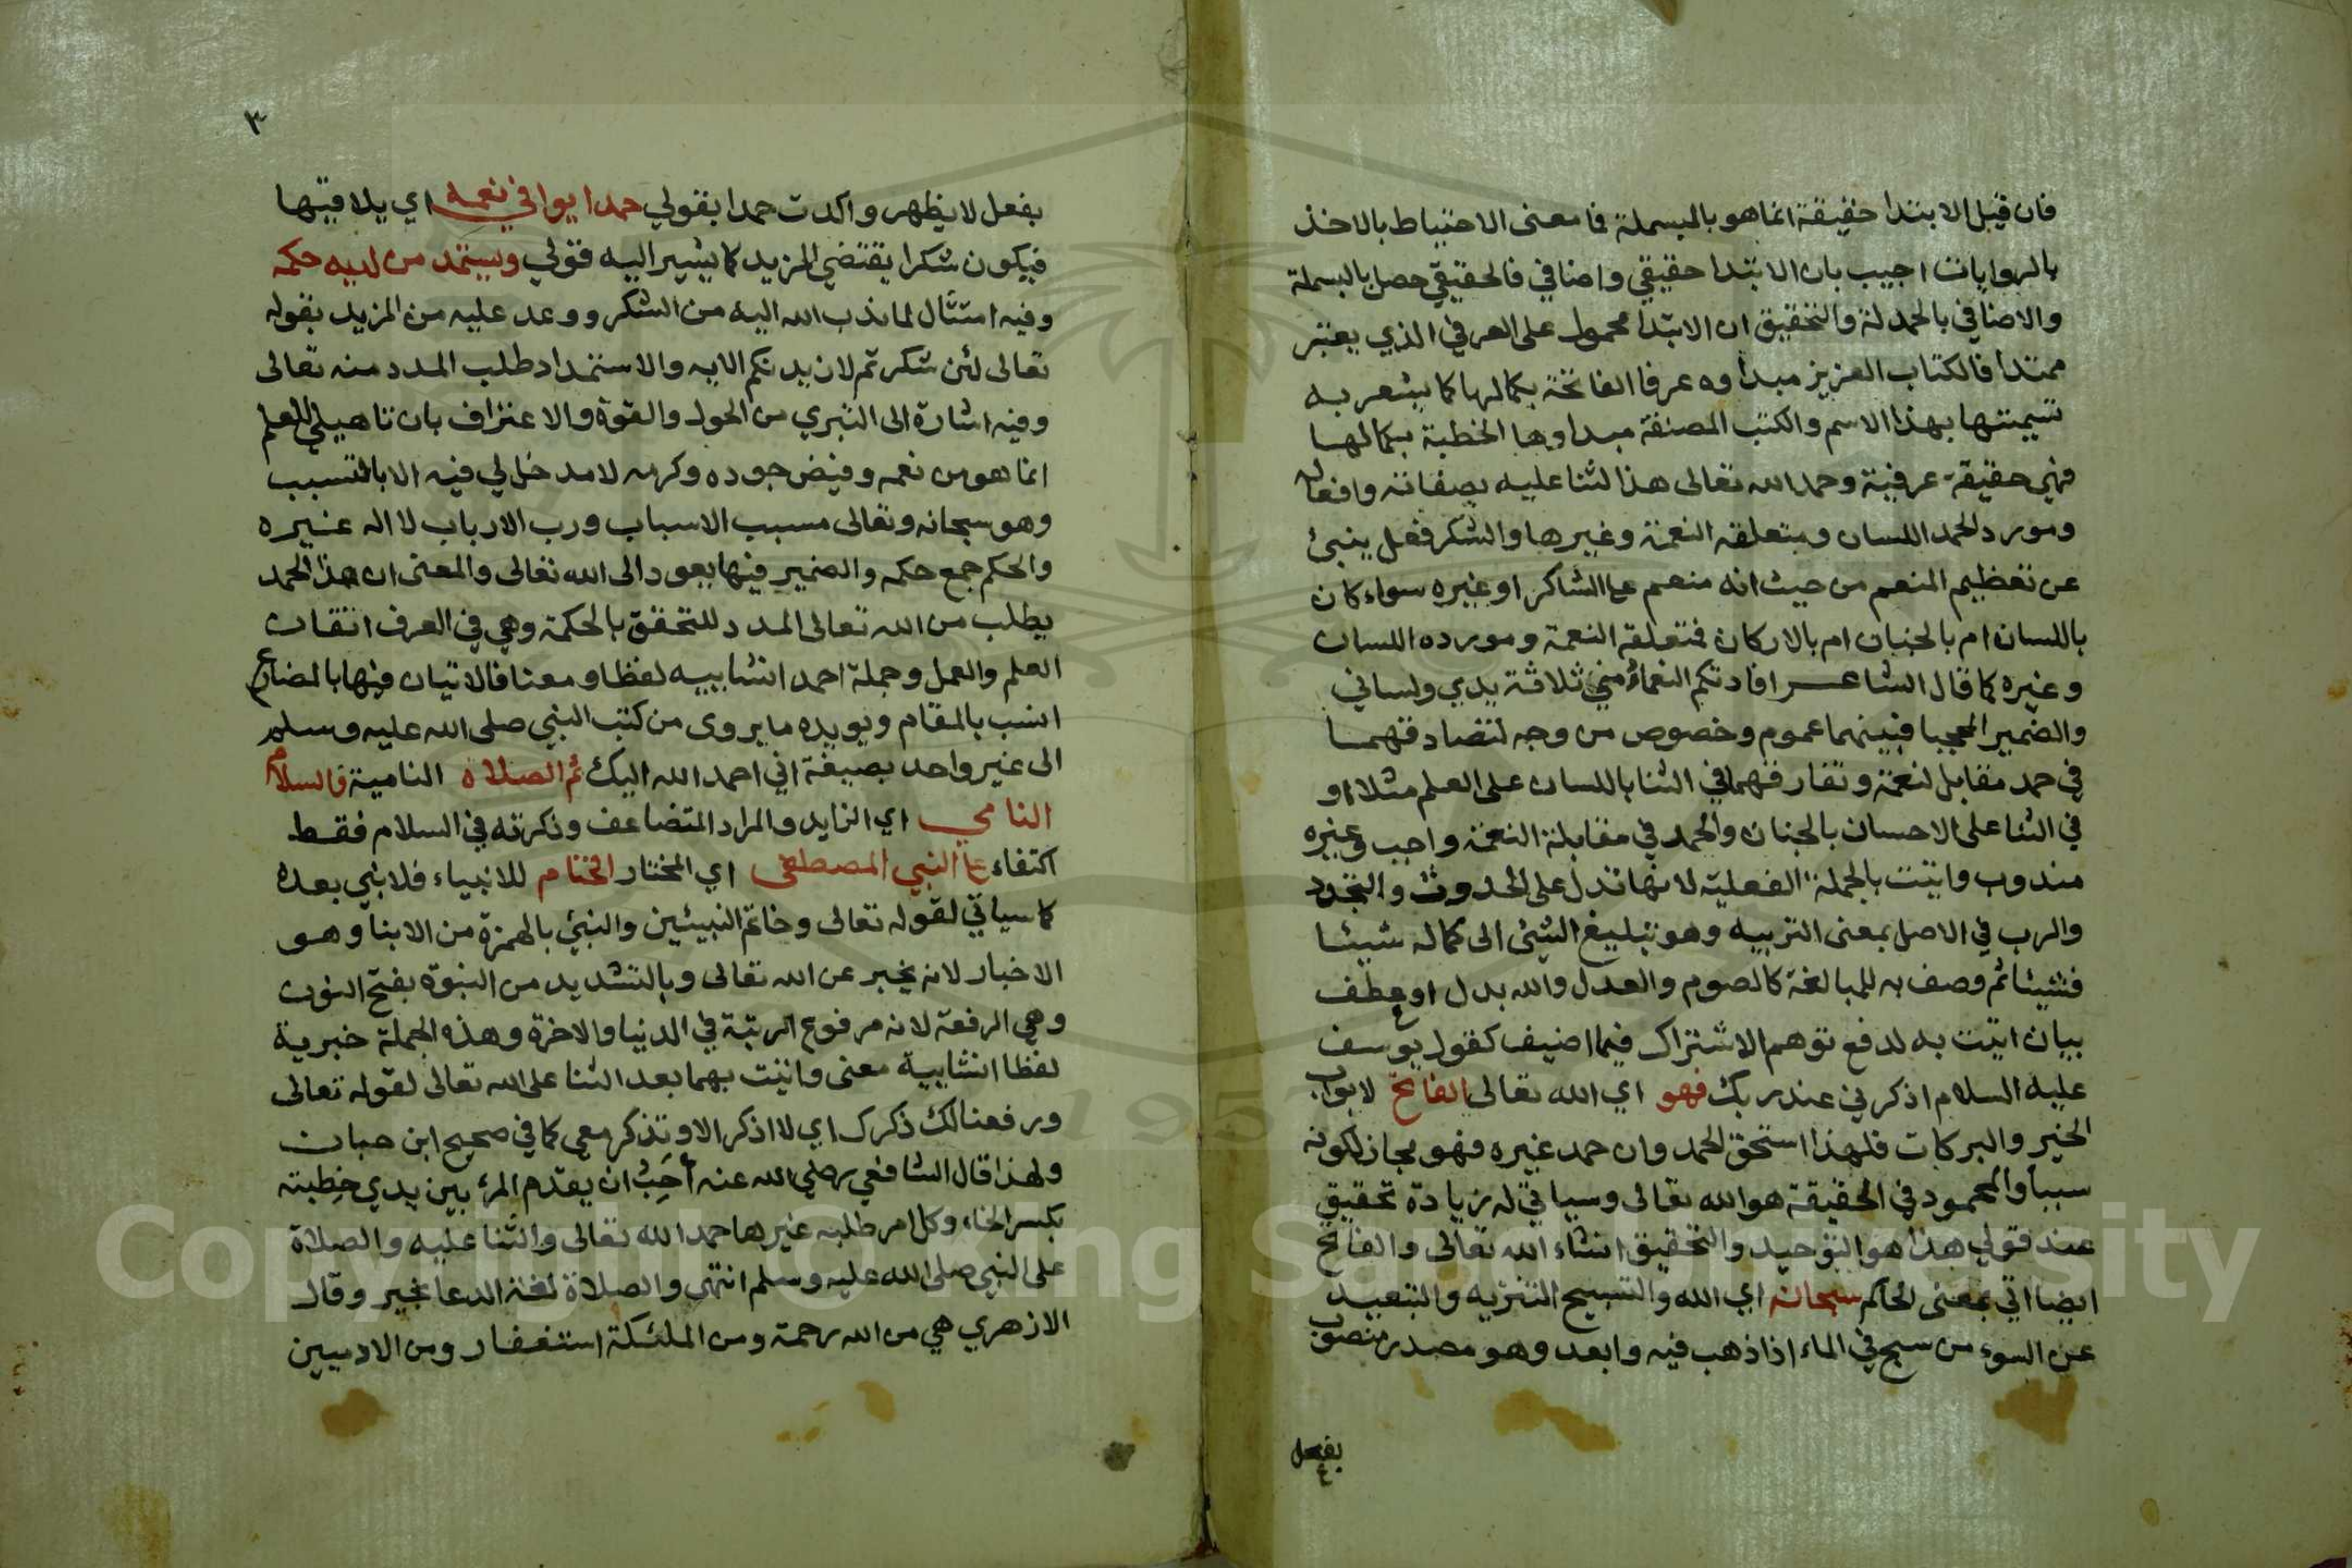 فان قيل الابتدا حقيقة انما هو بالبسملة فما معنى الاحتياط بالاخذ
بالروايات اجيب بان الابتدا حقيقي واضافي فالحقيقي حصل بالبسملة
والاضافي بالحمدلة والتحقيق ان الابتدا محمول على العرفي الذي يعتبر
ممتدا فالكتاب العزيز مبداوه عرفا الفاتحة بكمالها كما يشعر به
تسميتها بهذا الاسم والكتب المصنفة مبداوها الخطبة بكمالها
فهي حقيقة عرفية وحمد الله تعالى هذا الثنا عليه بصفاته وافعاله
ومورد الحمد اللسان ومتعلقه النعمة وغيرها والشكر فعل ينبئ
عن تعظيم المنعم من حيث انه منعم على الشاكر او غيره سواء كان
باللسان ام بالجنان ام بالاركان فمتعلقه النعمة ومورده اللسان
وغيره كما قال الشاعر افادتكم النعماء مني ثلاثة يدي ولساني
والضمير المحجبا فبينهما عموم وخصوص من وجه لتصادقهما
في حمد مقابل لنعمة وتفارقهما في الثنا باللسان على العلم مثلا او
في الثنا على الاحسان بالجنان والحمد في مقابلة النعمة واجب وغيره
مندوب واتيت بالجملة الفعلية لانها تدل على الحدوث والتجدد
والرب في الاصل بمعنى التربيه وهو تبليغ الشئ الى كماله شيئا
فشيئا ثم وصف به للمبالغة كالصوم والعدل والله بدل او عطف
بيان اتيت به لدفع توهم الاشتراك فيما اضيف كقول يوسف
عليه السلام اذكرني عند ربك فهو اي الله تعالى الفاتح لابواب
الخير والبركات فلهذا استحق الحمد وان حمد غيره فهو مجاز لكونه
سببا والمحمود في الحقيقة هو الله تعالى وسياتي له زيادة تحقيق
عند قولي هذا هو التوحيد والتحقيق انشاء الله تعالى والفاتح
ايضا اتي بمعنى الحاكم سبحانه اي الله والتسبيح التنزيه والتبعيد
عن السوء من سبح في الماء اذا ذهب فيه وابعد وهو مصدر منصوب
بفعل
٣
بفعل لا يظهر واكدت حمدا بقولي حمدا يوافي نعمه اي يلاقيها
فيكون شكرا يقتضي المزيد كما يشير اليه قولي ويستمد من لديه حكمه
وفيه امتثال لما ندب الله اليه من الشكر ووعد عليه من المزيد بقوله
تعالى لئن شكرتم لازيدنكم الايه والاستمداد طلب المدد منه تعالى
وفيه اشارة الى التبري من الحول والقوة والاعتراف بان تاهيلي للعلم
انما هو من نعمه وفيض جوده وكرمه لا مدخل لي فيه الا بالتسبب
وهو سبحانه وتعالى مسبب الاسباب ورب الارباب لا اله غيره
والحكم جمع حكمه والضمير فيها يعود الى الله تعالى والمعنى ان هذا الحمد
يطلب من الله تعالى المدد للتحقق بالحكمة وهي في العرف اتقان
العلم والعمل وجملة احمد انشاييه لفظا ومعنا فالاتيان فيها بالمضارع
انسب بالمقام ويويده ما يروى من كتب النبي صلى الله عليه وسلم
الى غير واحد بصيغة اني احمد الله اليك ثم الصلاه النامية فالسلام
النامي اي الزايد والمراد المتضاعف وذكرته في السلام فقط
اكتفاء على النبي المصطفى اي المختار الختام للانبياء فلا نبي بعده
كما سياتي لقوله تعالى وخاتم النبيئين والنبئ بالهمزة من الانبا وهو
الاخبار لانه يخبر عن الله تعالى وبالتشديد من النبوة بفتح النون
وهي الرفعة لانه مرفوع الرتبة في الدنيا والاخرة وهذه الجملة خبرية
لفظا انشاييه معنى واتيت بهما بعد الثنا على الله تعالى لقوله تعالى
ورفعنا لك ذكرك اي لا اذكر الا وتذكر معي كما في صحيح ابن حبان
ولهذا قال الشافعي رضي الله عنه أحبُّ ان يقدّم المرء بين يدي خِطبته
بكسر الخاء وكل امر طلبه غيرها حمد الله تعالى والثنا عليه والصلاة
على النبي صلى الله عليه وسلم انتهى والصلاة لغة الدعا بخير وقال
الازهري هي من الله رحمة ومن الملئكة استغفار ومن الادميين
Copyright © King Saud University
1957